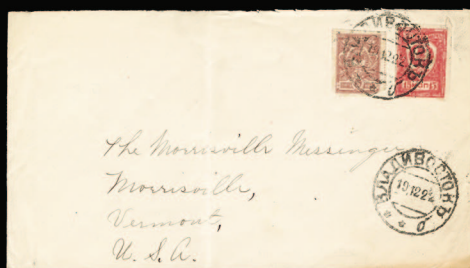 ВЛАДИВОСТОКЪ
The Morrisville Messenger
Morrisville,
Vermont,
U. S. A.
ВЛАДИВОСТОКЪ
19.12.22